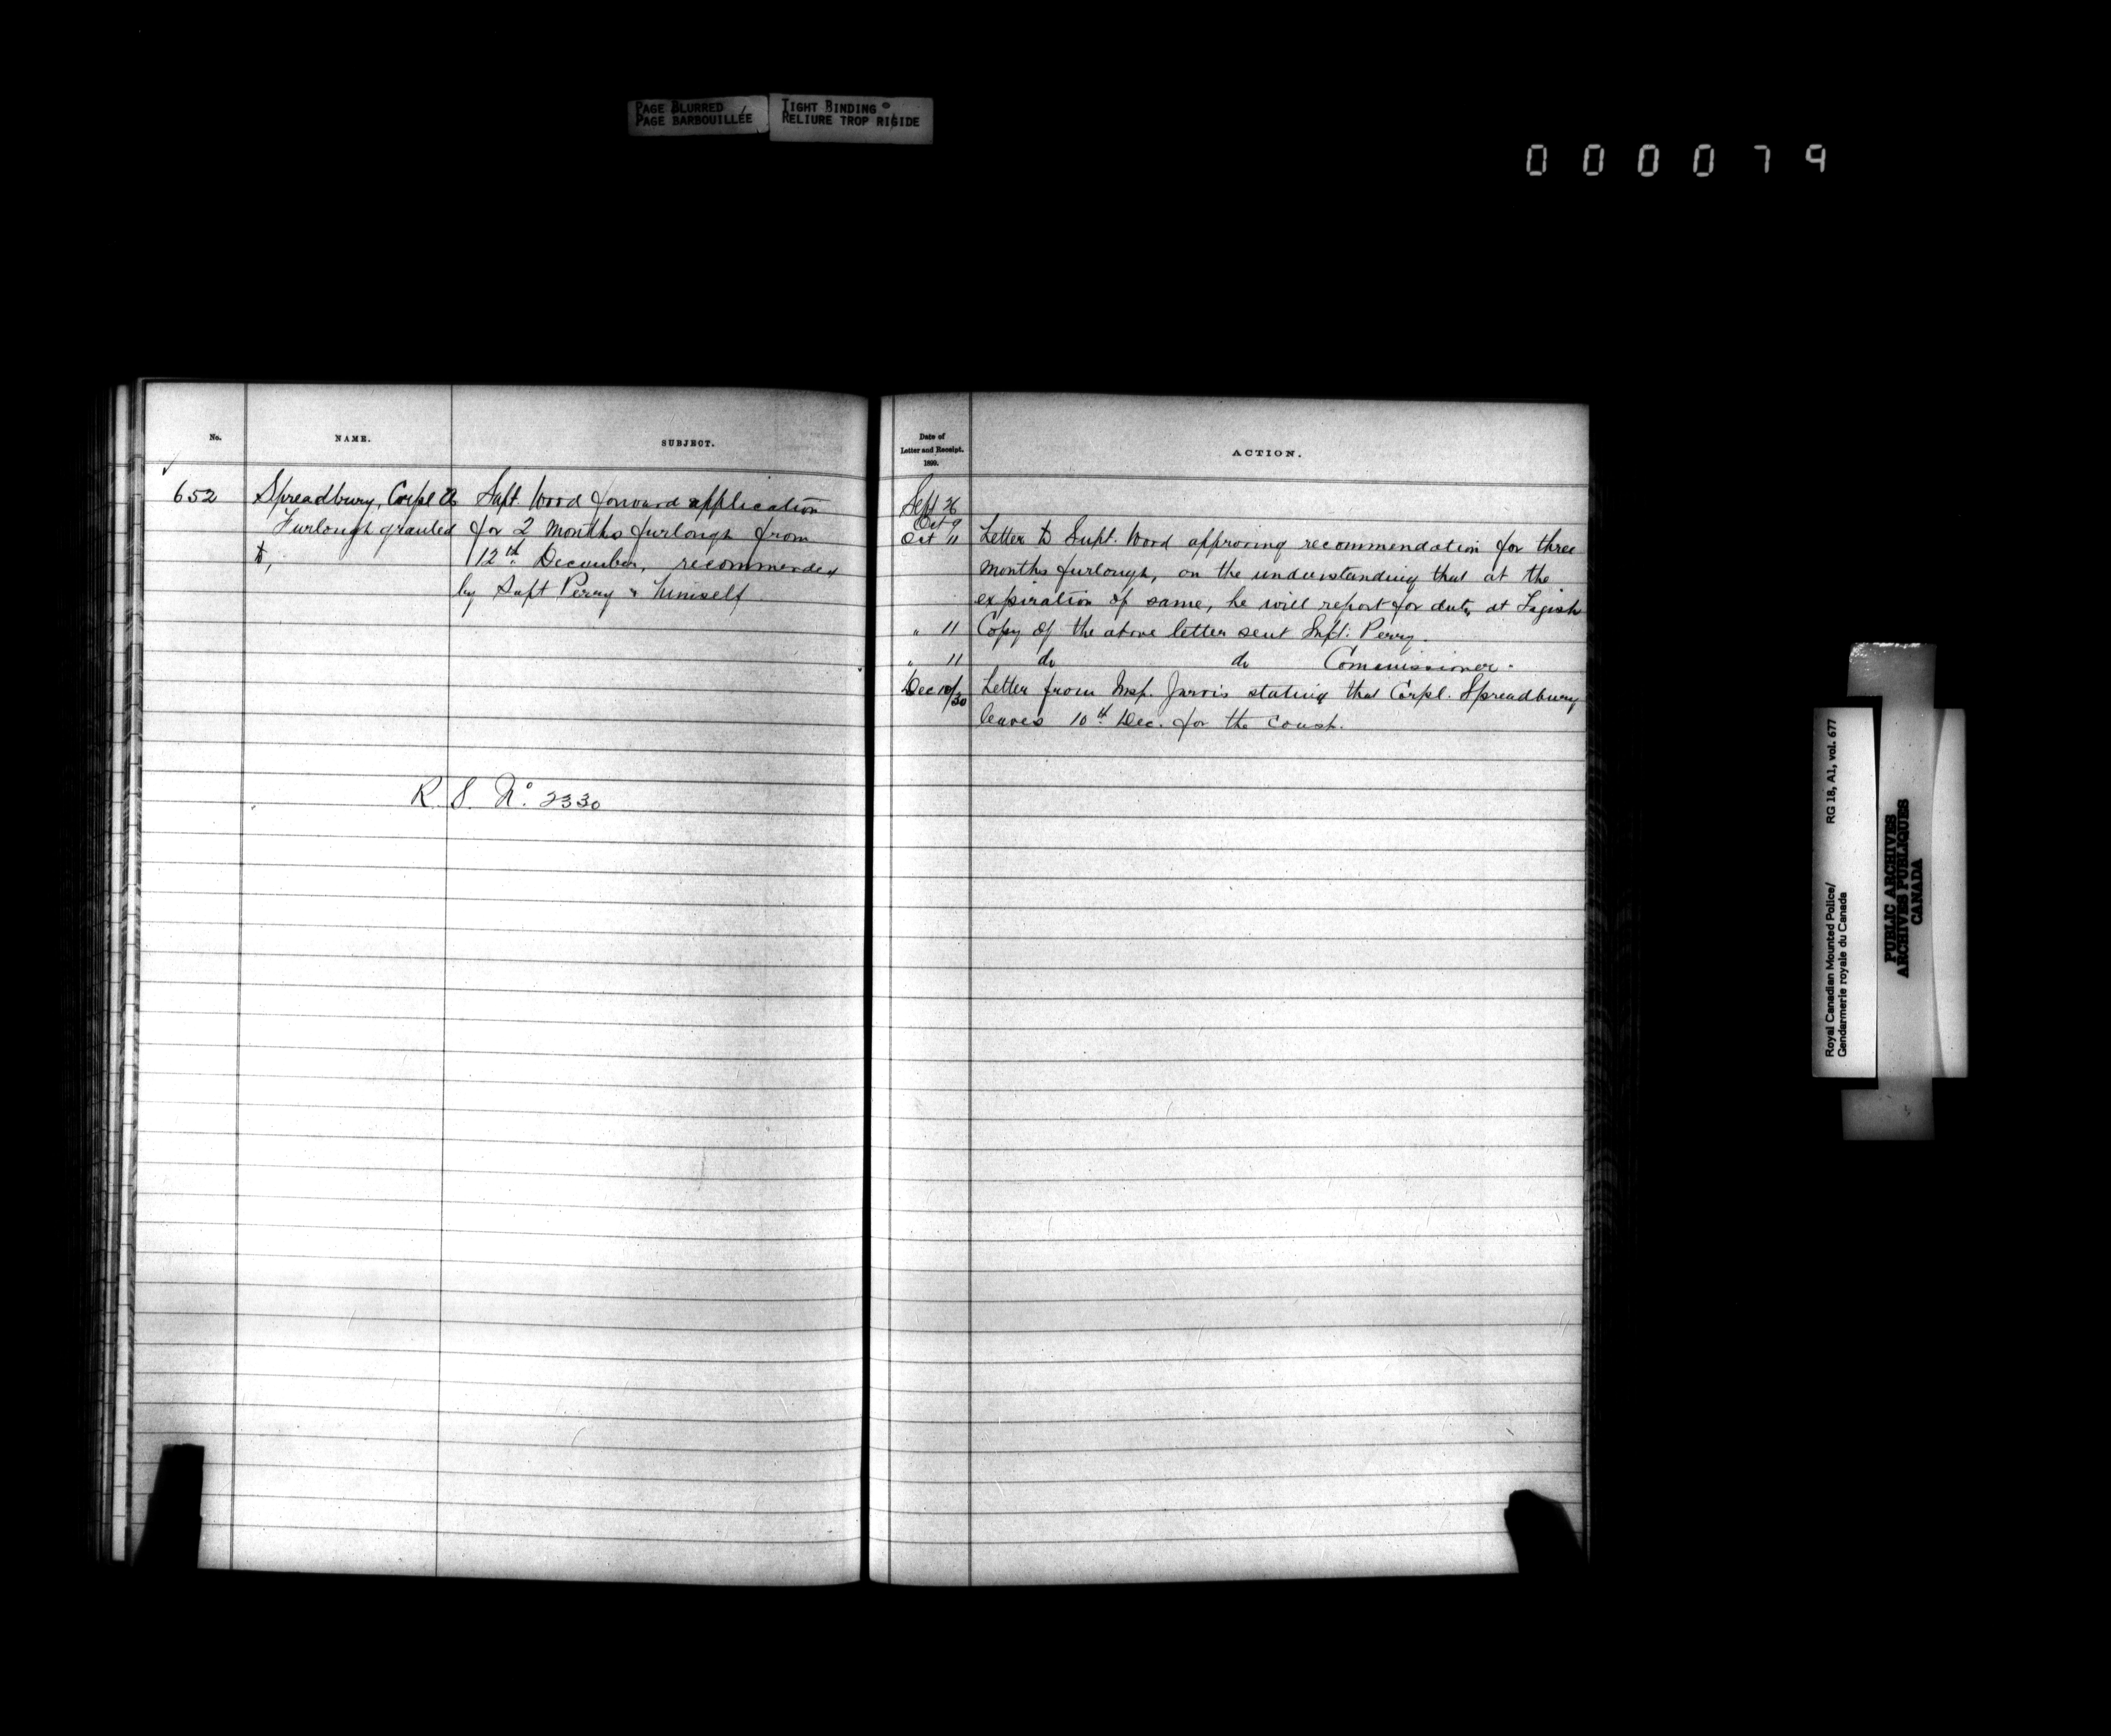 PAGE BLURRED
PAGE BARBOUILLÉE
TIGHT BINDING
RELIURE TROP RIGIDE
000079
No.
NAME.
SUBJECT.
652
Spreadbury, Corpl A
Furlough granted
to,
Supt. Wood forward application
for 2 months furlough from
12th December, recommended
by Supt Perry & himself
R. S. No. 2330
Date of
Letter and Receipt.
1899.
ACTION.
Sept 26
Oct 9
Oct 11 Letter to Supt. Wood approving recommendation for three
months furlough, on the understanding that at the
expiration of same, he will report for duty at Tagish
" 11 Copy of the above letter sent Supt. Perry.
" 11 do do Commissioner.
Dec 10/30 Letter from Insp. Jarvis stating that Corpl. Spreadbury
leaves 10th Dec. for the coast.
Royal Canadian Mounted Police/ RG 18, A1, vol. 677
Gendarmerie royale du Canada
PUBLIC ARCHIVES
ARCHIVES PUBLIQUES
CANADA